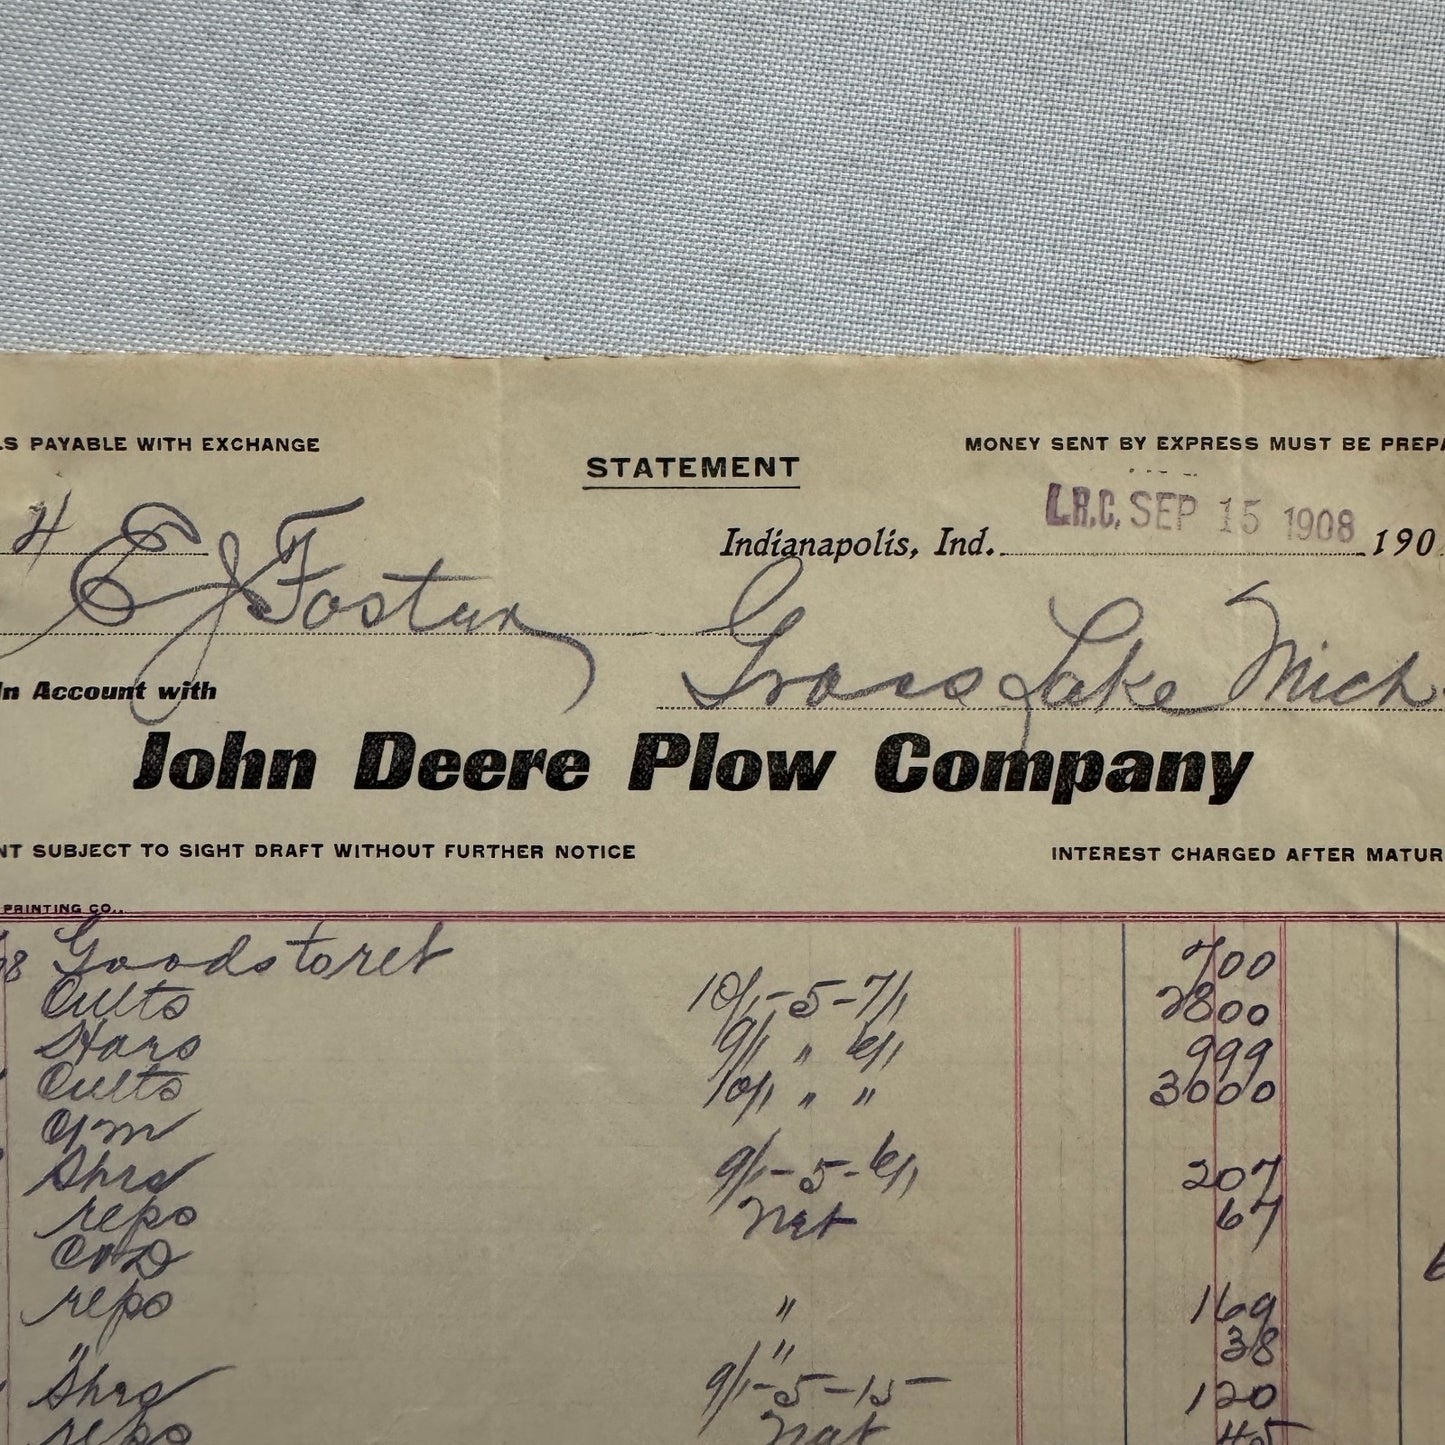 LS PAYABLE WITH EXCHANGE
STATEMENT
MONEY SENT BY EXPRESS MUST BE PREPA
4
Indianapolis, Ind. L.R.C. SEP 15 1908 190
E J Foster
Grass Lake Mich
In Account with
John Deere Plow Company
NT SUBJECT TO SIGHT DRAFT WITHOUT FURTHER NOTICE
INTEREST CHARGED AFTER MATUR
PRINTING CO.
08 Goods toret 700
Cults 10/1-5-7/1 2800
Hars 9/1 " 6/1 999
Cults 10/1 " " 3000
Shrs 9/1-5-6/1 207
repo Net 67
repo " 169
" " 38
Shrs 9/1-5-15- 120
repo Net 45